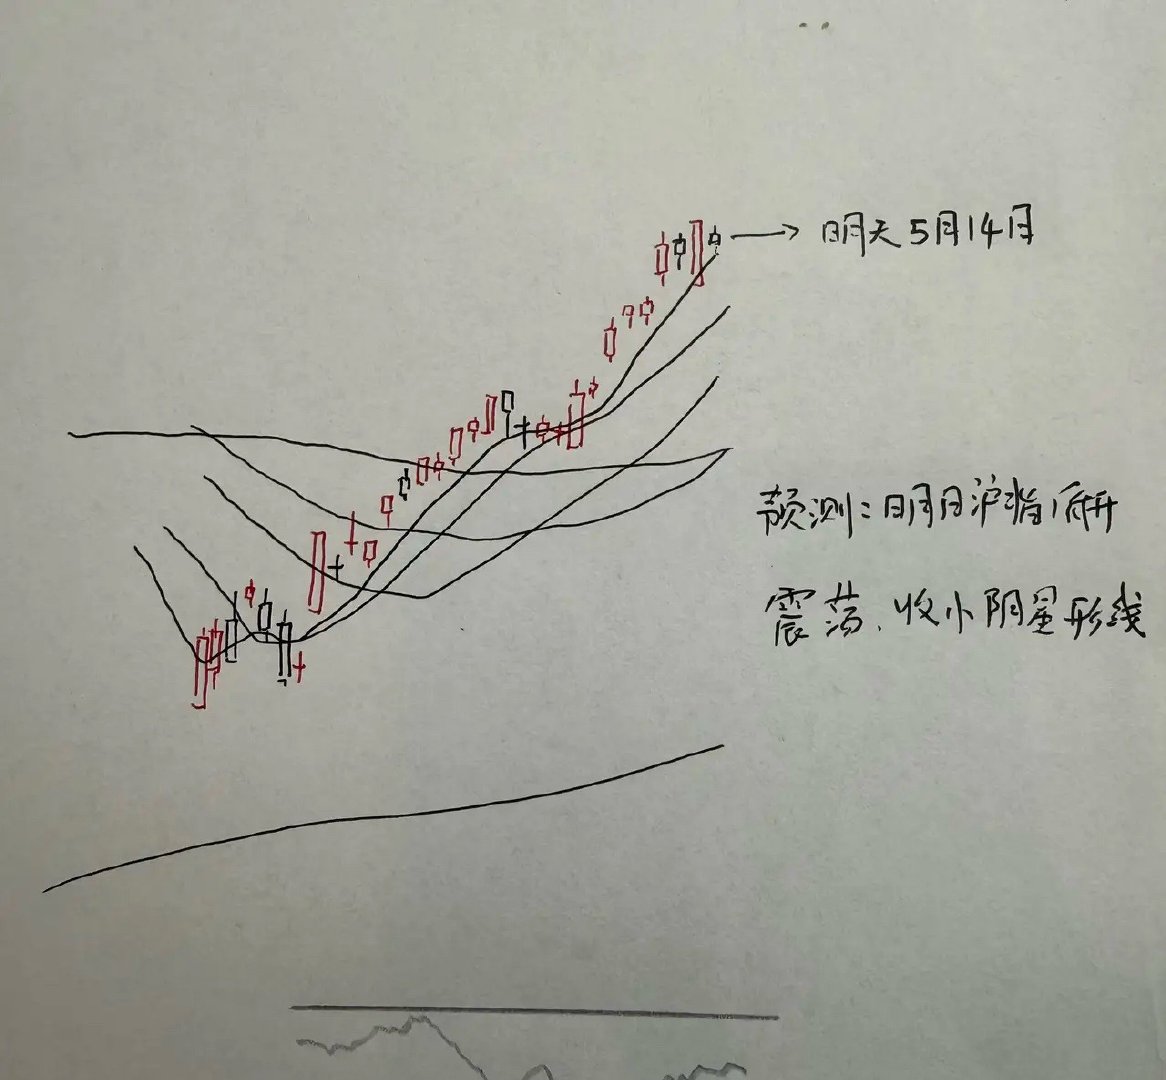 明天5月14日
预测:明日沪指低开
震荡.收小阴星形线